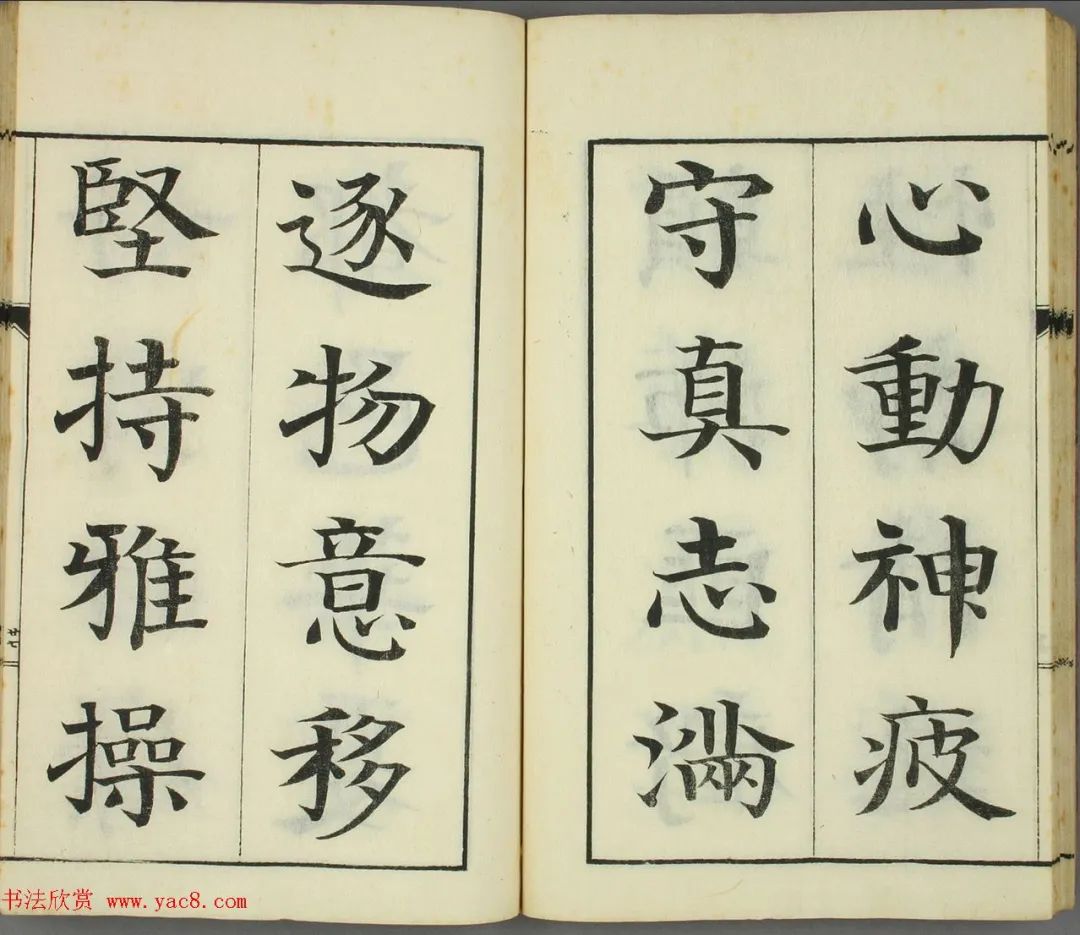 心動神疲
守真志滿
逐物意移
堅持雅操
书法欣赏 www.yac8.com